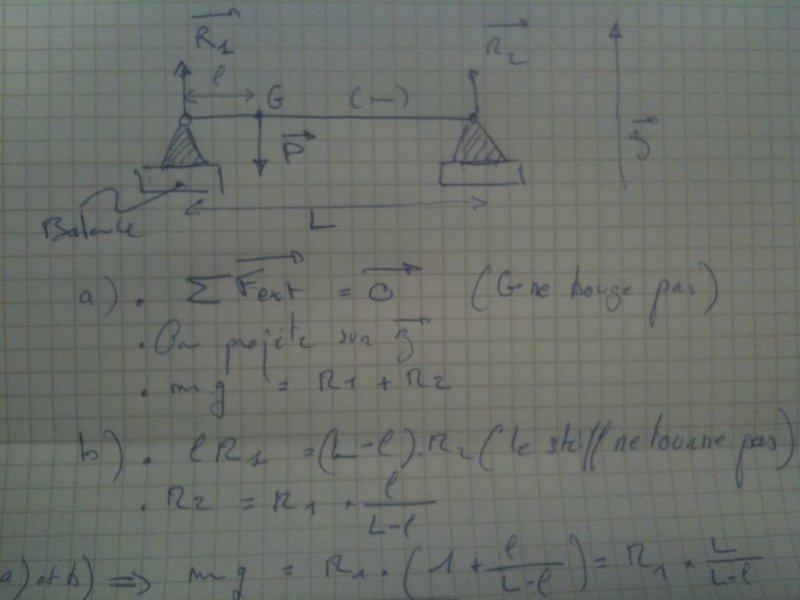 R1
R2
l
G
(m)
P
z
Balance
L
a) . Σ Fext = 0 (G ne bouge pas)
. On projete sur z
. mg = R1 + R2
b) . lR1 = (L-l).R2 (le stiff ne tourne pas)
. R2 = R1 * l/(L-l)
a) et b) ⇒ mg = R1 * (1 + l/(L-l)) = R1 * L/(L-l)